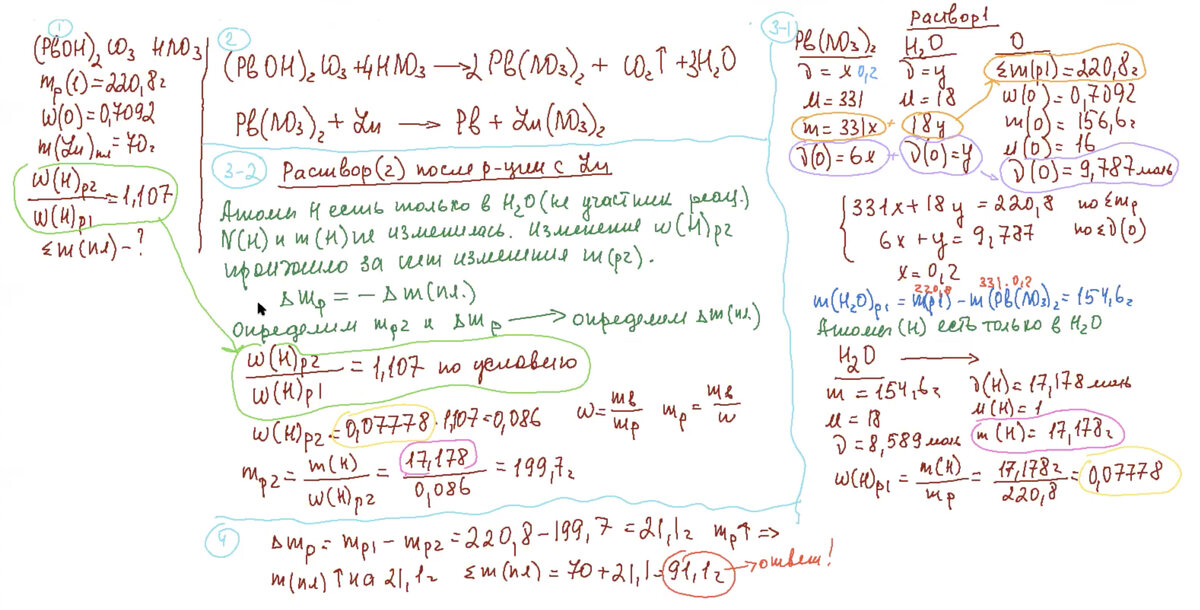 1
(PbOH)₂CO₃ HNO₃
mр(1)=220,8г
w(O)=0,7092
m(Zn)пл=70г
w(H)р2 / w(H)р1 = 1,107
Σm(пл)-?
2
(PbOH)₂CO₃+4HNO₃ → 2Pb(NO₃)₂ + CO₂↑ +3H₂O
Pb(NO₃)₂ + Zn → Pb + Zn(NO₃)₂
3-2 Раствор(2) после р-ции с Zn
Атомы H есть только в H₂O (не участник реац.)
N(H) и m(H) не изменилась. Изменение w(H)р2
произошло за счет изменения m(р2).
Δmр = -Δm(пл.)
определим mр2 и Δmр → определим Δm(пл)
w(H)р2 / w(H)р1 = 1,107 по условию
w(H)р2=0,07778·1,107=0,086 w = mв/mр mр = mв/w
mр2 = m(H) / w(H)р2 = 17,178 / 0,086 = 199,7г
4
Δmр = mр1 - mр2 = 220,8-199,7=21,1г mр↑ ⇒
m(пл)↑ на 21,1г Σm(пл) = 70+21,1=91,1г → ответ!
3-1
Раствор1
Pb(NO₃)₂ H₂O O
ν = x 0,2 ν=y Σm(р1)=220,8г
M=331 M=18 w(O)=0,7092
m=331x + 18y m(O)=156,6г
M(O)=16
ν(O)=6x + ν(O)=y ν(O)=9,787моль
331x+18y=220,8 по Σmр
6x+y=9,787 по Σν(O)
x=0,2
220,8 331·0,2
m(H₂O)р1 = m(р1)-m(Pb(NO₃)₂=154,6г
Атомы (H) есть только в H₂O
H₂O →
m=154,6г ν(H)=17,178моль
M=18 M(H)=1
ν=8,589моль m(H)=17,178г
w(H)р1 = m(H)/mр = 17,178г / 220,8 = 0,07778